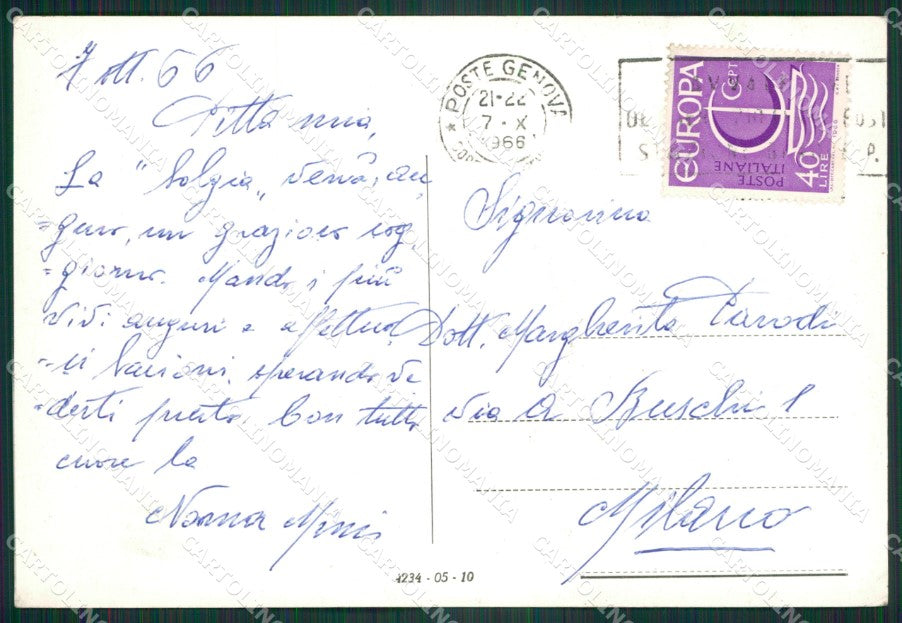 7 ott. 66
Pitta mia,
La "Bolgia" verrà, au=
=guro, un grazioso sog=
=giorno. Mando i più
vivi auguri e affettuo=
=si bacioni, sperando ve=
=derti presto. Con tutto
cuore la
Nonna Mimì
POSTE GENOVA
21-22
7·X
1966
EUROPA
CEPT
POSTE
ITALIANE
40
LIRE
1966
Signorina
Dott. Margherita Parodi
via A. Bruschi 1
Milano
4234 - 05 - 10
CARTOLINOMANIA